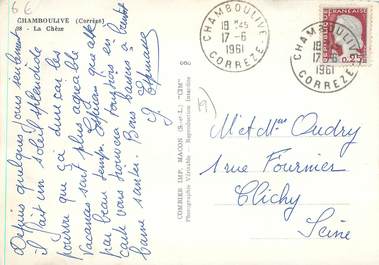 6€
CHAMBOULIVE (Corrèze)
28 - La Chèze
Depuis quelques jours seulement
il fait un soleil splendide
pourvu que ça dure car les
vacances sont plus agréables
par beau temps. J'espère que cette
carte vous trouvera toujours en
bonne santé. Bons baisers à bientôt
G. Espinasse
COMBIER IMP. MACON (S.-et-L.) "CIM"
Photographie Véritable - Reproduction interdite
CHAMBOULIVE
18 H45
17-6
1961
CORREZE
CHAMBOULIVE
18
17-6
1961
CORREZE
0,25
M et Mme Oudry
1 rue Fournier
Clichy
Seine